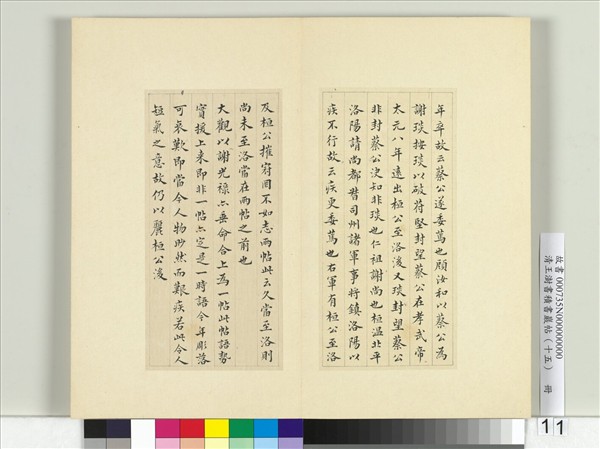 年卒故云蔡公遂委篤也顏汝和以蔡公為
謝琰按琰以破苻堅封望蔡公在孝武帝
太元八年遠出桓公至洛後又琰封望蔡公
非封蔡公決知非琰也仁祖謝尚也桓溫北平
洛陽請尚都督司州諸軍事將鎮洛陽以
疾不行故云疾更委篤也右軍有桓公至洛
及桓公摧寇罔不如志兩帖此云久當至洛則
尚未至洛當在兩帖之前也
大觀以謝光祿六垂命合上為一帖此帖語勢
實援上来即非一帖亦定是一時語今年彫落
可哀歎即當今人物眇然而艱疾若此令人
短氣之意故仍以麗桓公後
故書000735N000000000
清王澍書積書巖帖（十五） 冊
11